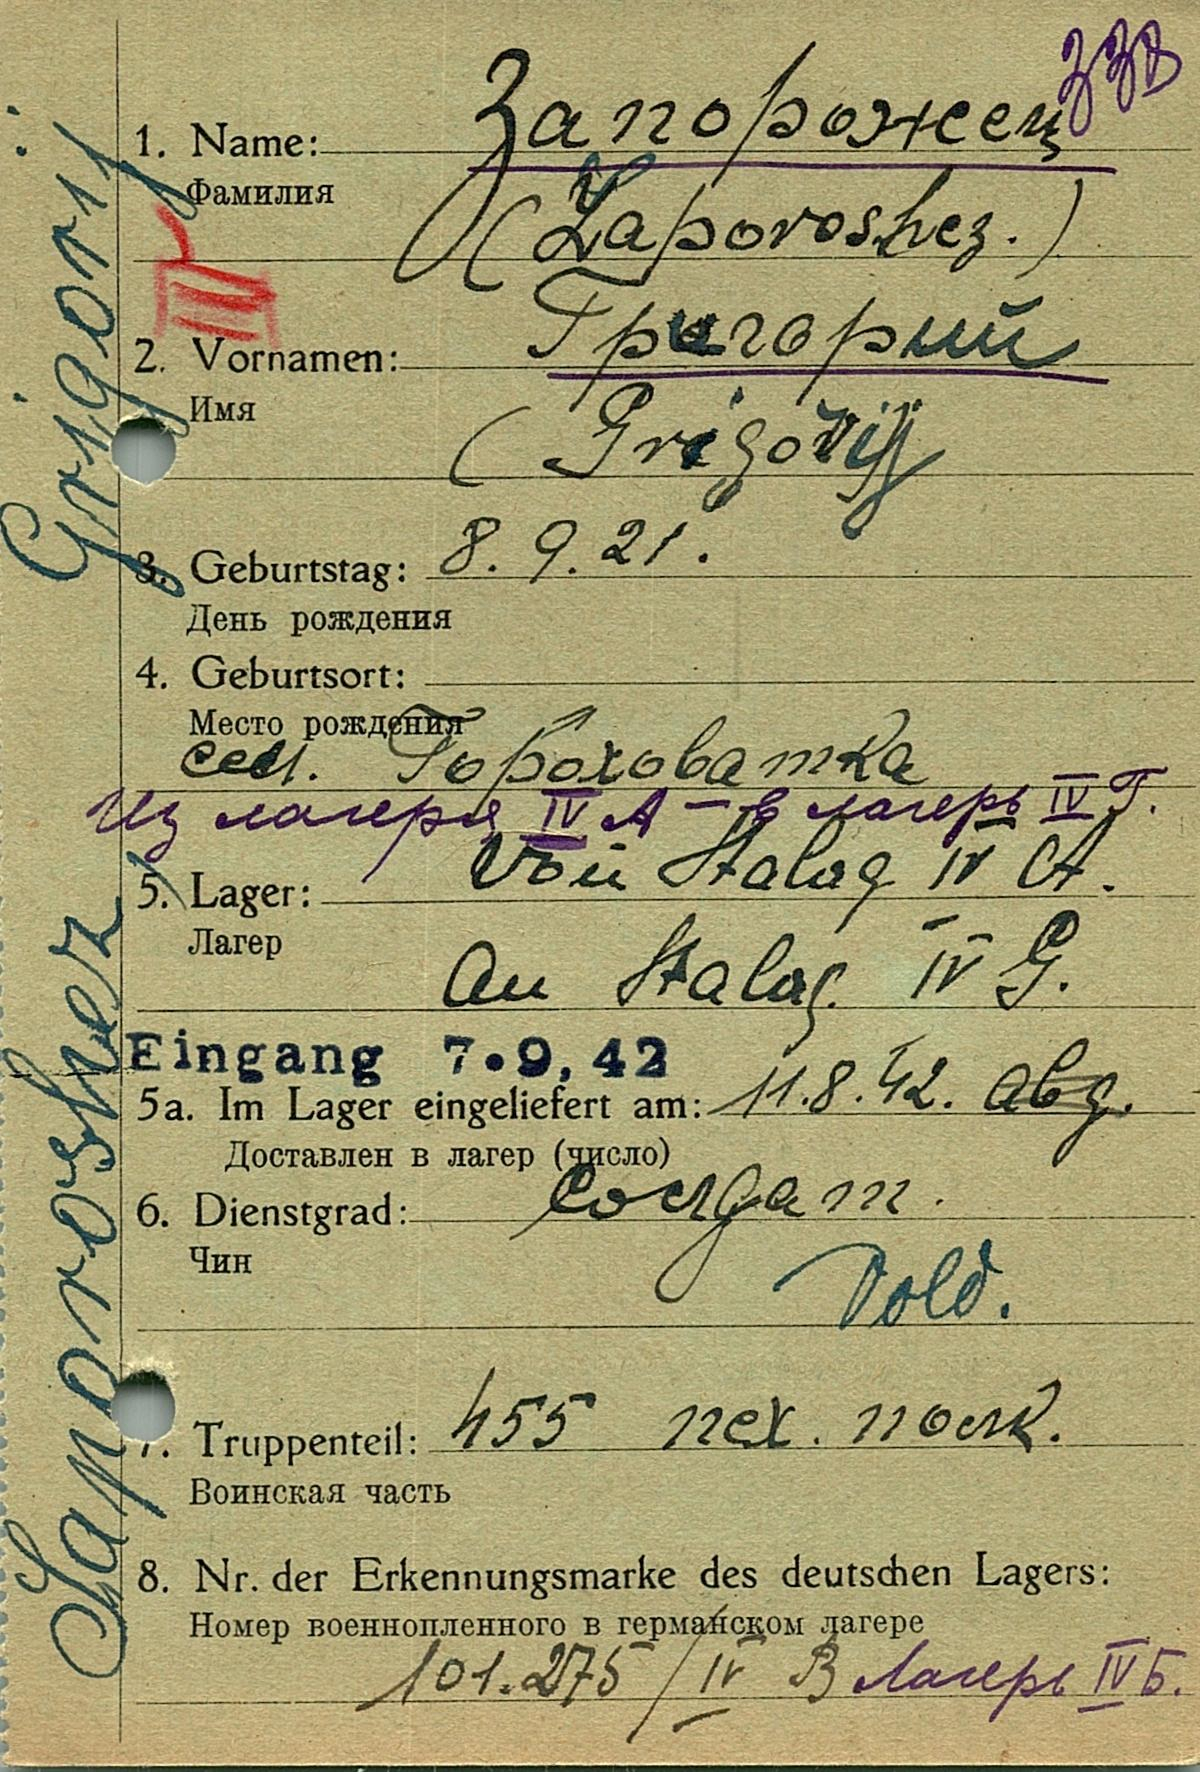 1. Name: Запорожец
Фамилия
(Zaporoshez.)
2. Vornamen: Григорий
Имя
(Grigorij
3. Geburtstag: 8. 9. 21.
День рождения
4. Geburtsort:
Место рождения
сел. Гороховатка
Из лагеря IV А – в лагерь IV Г.
5. Lager: Von Stalag IV A.
Лагер
An Stalag. IV G.
Eingang 7.9,42
5a. Im Lager eingeliefert am: 11.8.42. abg.
Доставлен в лагер (число)
6. Dienstgrad: Солдат.
Чин
Sold.
7. Truppenteil: 455 пех. полк.
Воинская часть
8. Nr. der Erkennungsmarke des deutschen Lagers:
Номер военнопленного в германском лагере
101.275 / IV B Лагерь IV Б.
Saporoshez Grigorij